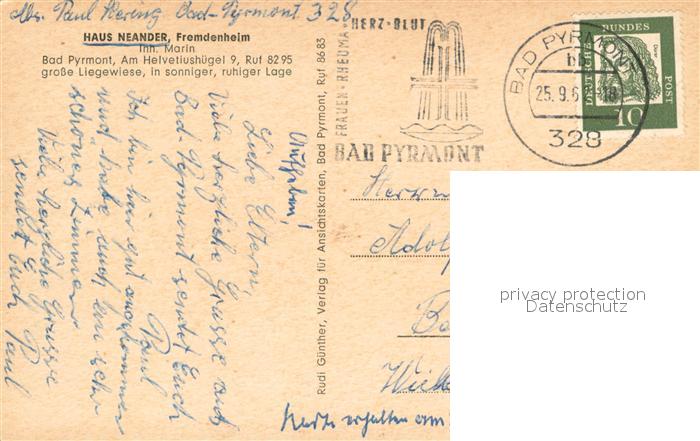 Abs. Paul Hering Bad-Pyrmont 328
HAUS NEANDER, Fremdenheim
Inh. Marin
Bad Pyrmont, Am Helvetiushügel 9, Ruf 8295
große Liegewiese, in sonniger, ruhiger Lage
Liebe Eltern,
Viele herzliche Grüsse aus
Bad-Pyrmont sendet Euch
Paul
Ich bin hier gut angekommen
und habe auch ein sehr
schönes Zimmer
Viele herzliche Grüsse
sendet Euch Paul
Rudi Günther, Verlag für Ansichtskarten, Bad Pyrmont, Ruf 8683
FRAUEN·RHEUMA·HERZ·BLUT
BAD PYRMONT
BAD PYRMONT
bb
25.9.6
18
328
DEUTSCHE BUNDES POST
10
Herrn
Adol
Karte erhalten am
privacy protection
Datenschutz